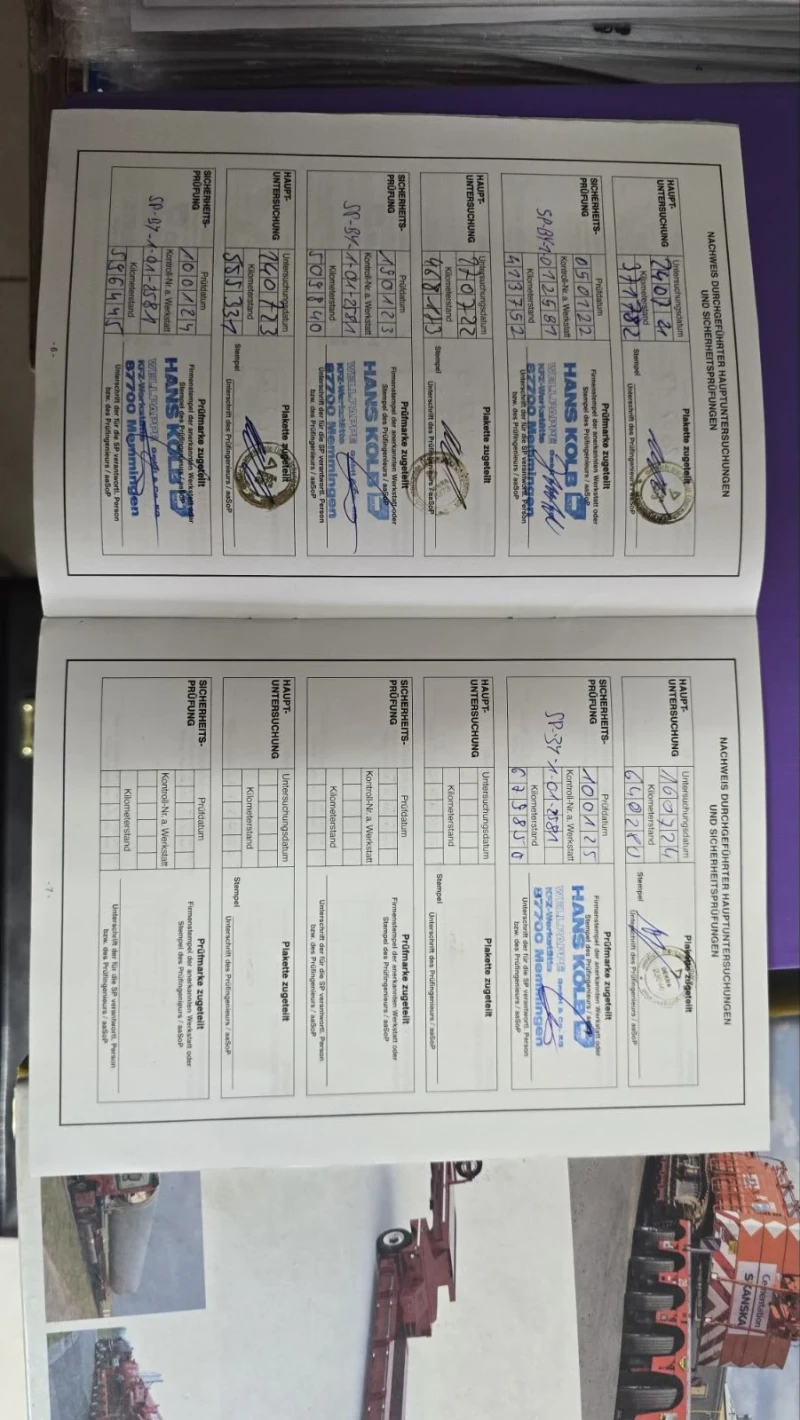 NACHWEIS DURCHGEFÜHRTER HAUPTUNTERSUCHUNGEN
UND SICHERHEITSPRÜFUNGEN
HAUPT-
UNTERSUCHUNG
Untersuchungsdatum
Kilometerstand
371782
Stempel
Plakette zugeteilt
Unterschrift des Prüfingenieurs / aaSoP
SICHERHEITS-
PRÜFUNG
Prüfdatum
050122
Kontroll-Nr. a. Werkstatt
SP-BY-1012581
Kilometerstand
413752
Prüfmarke zugeteilt
Firmenstempel der anerkannten Werkstatt oder
Stempel des Prüfingenieurs / aaSoP
HANS KOLB
WELLPAPPE
KFZ-Werkstätte
87700 Memmingen
Unterschrift der für die SP verantwortl. Person
HAUPT-
UNTERSUCHUNG
Untersuchungsdatum
170722
Kilometerstand
Stempel
Plakette zugeteilt
Unterschrift des Prüfingenieurs / aaSoP
SICHERHEITS-
PRÜFUNG
Prüfdatum
190123
Kontroll-Nr. a. Werkstatt
SP-BY-1-01-2581
Kilometerstand
509840
Prüfmarke zugeteilt
Firmenstempel der anerkannten Werkstatt oder
Stempel des Prüfingenieurs / aaSoP
HANS KOLB
WELLPAPPE
KFZ-Werkstätte
87700 Memmingen
Unterschrift der für die SP verantwortl. Person
bzw. des Prüfingenieurs / aaSoP
HAUPT-
UNTERSUCHUNG
Untersuchungsdatum
140723
Kilometerstand
555331
Stempel
Plakette zugeteilt
Unterschrift des Prüfingenieurs / aaSoP
SICHERHEITS-
PRÜFUNG
Prüfdatum
100124
Kontroll-Nr. a. Werkstatt
SP-BY-1-01-2581
Kilometerstand
596445
Prüfmarke zugeteilt
Firmenstempel der anerkannten Werkstatt oder
Stempel des Prüfingenieurs / aaSoP
HANS KOLB
WELLPAPPE GmbH & Co. KG
KFZ-Werkstätte
87700 Memmingen
Unterschrift der für die SP verantwortl. Person
bzw. des Prüfingenieurs / aaSoP
- 6 -
NACHWEIS DURCHGEFÜHRTER HAUPTUNTERSUCHUNGEN
UND SICHERHEITSPRÜFUNGEN
HAUPT-
UNTERSUCHUNG
Untersuchungsdatum
160724
Kilometerstand
640280
Stempel
Plakette zugeteilt
Unterschrift des Prüfingenieurs / aaSoP
SICHERHEITS-
PRÜFUNG
Prüfdatum
100125
Kontroll-Nr. a. Werkstatt
SP-BY-1-01-2581
Kilometerstand
679850
Prüfmarke zugeteilt
Firmenstempel der anerkannten Werkstatt oder
Stempel des Prüfingenieurs / aaSoP
HANS KOLB
WELLPAPPE GmbH & Co. KG
KFZ-Werkstätte
87700 Memmingen
Unterschrift der für die SP verantwortl. Person
bzw. des Prüfingenieurs / aaSoP
HAUPT-
UNTERSUCHUNG
Untersuchungsdatum
Kilometerstand
Stempel
Plakette zugeteilt
Unterschrift des Prüfingenieurs / aaSoP
SICHERHEITS-
PRÜFUNG
Prüfdatum
Kontroll-Nr. a. Werkstatt
Kilometerstand
Prüfmarke zugeteilt
Firmenstempel der anerkannten Werkstatt oder
Stempel des Prüfingenieurs / aaSoP
Unterschrift der für die SP verantwortl. Person
bzw. des Prüfingenieurs / aaSoP
HAUPT-
UNTERSUCHUNG
Untersuchungsdatum
Kilometerstand
Stempel
Plakette zugeteilt
Unterschrift des Prüfingenieurs / aaSoP
SICHERHEITS-
PRÜFUNG
Prüfdatum
Kontroll-Nr. a. Werkstatt
Kilometerstand
Prüfmarke zugeteilt
Firmenstempel der anerkannten Werkstatt oder
Stempel des Prüfingenieurs / aaSoP
Unterschrift der für die SP verantwortl. Person
bzw. des Prüfingenieurs / aaSoP
- 7 -
Cementation
SKANSKA